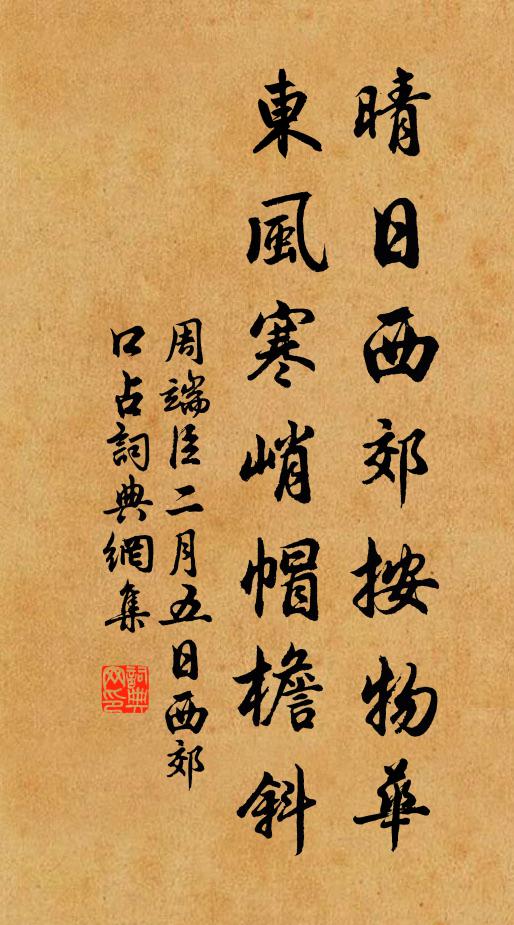 晴日西郊按物華
東風寒峭帽檐斜
周端臣二月五日西郊
口占詞典網集
詞典
网印